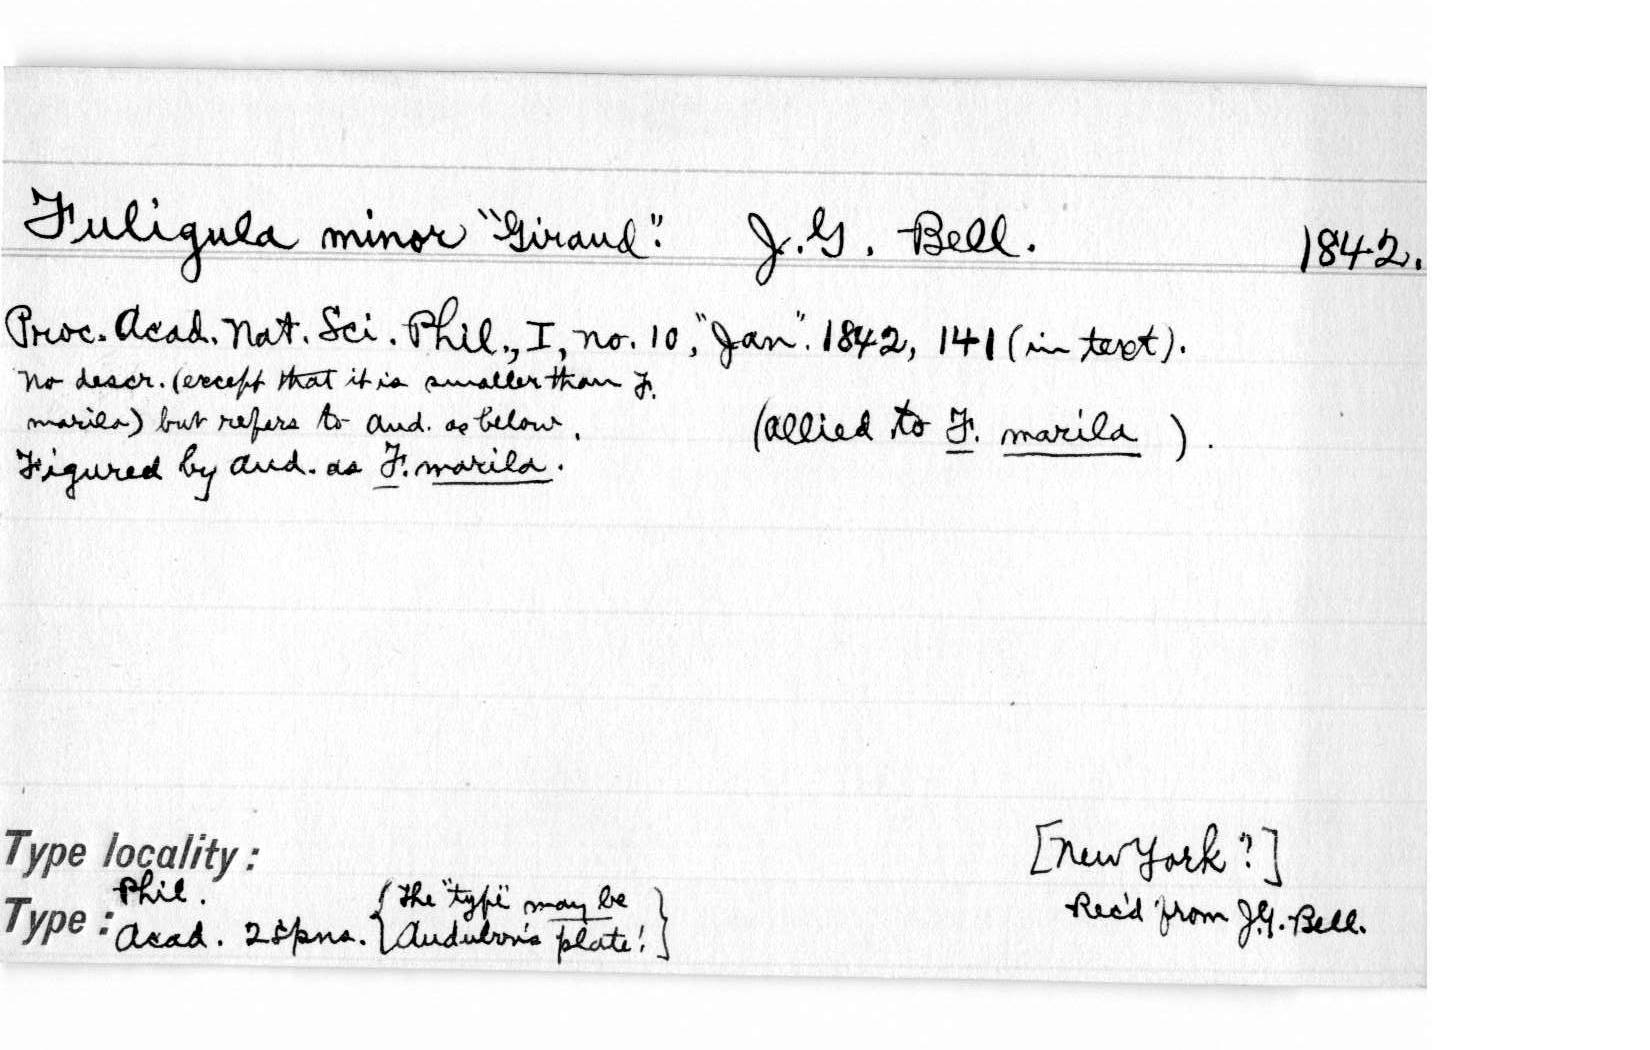 Fuligula minor "Giraud". J. G. Bell. 1842.
Proc. Acad. Nat. Sci. Phil., I, no. 10, "Jan". 1842, 141 (in text).
No descr. (except that it is smaller than F.
marila) but refers to Aud. as below.
(allied to F. marila).
Figured by Aud. as F. marila.
Type locality: [New York?]
Type: Phil.
Acad. 2 spns. {The "type" may be
Audubon's plate!}
Rec'd from J.G. Bell.